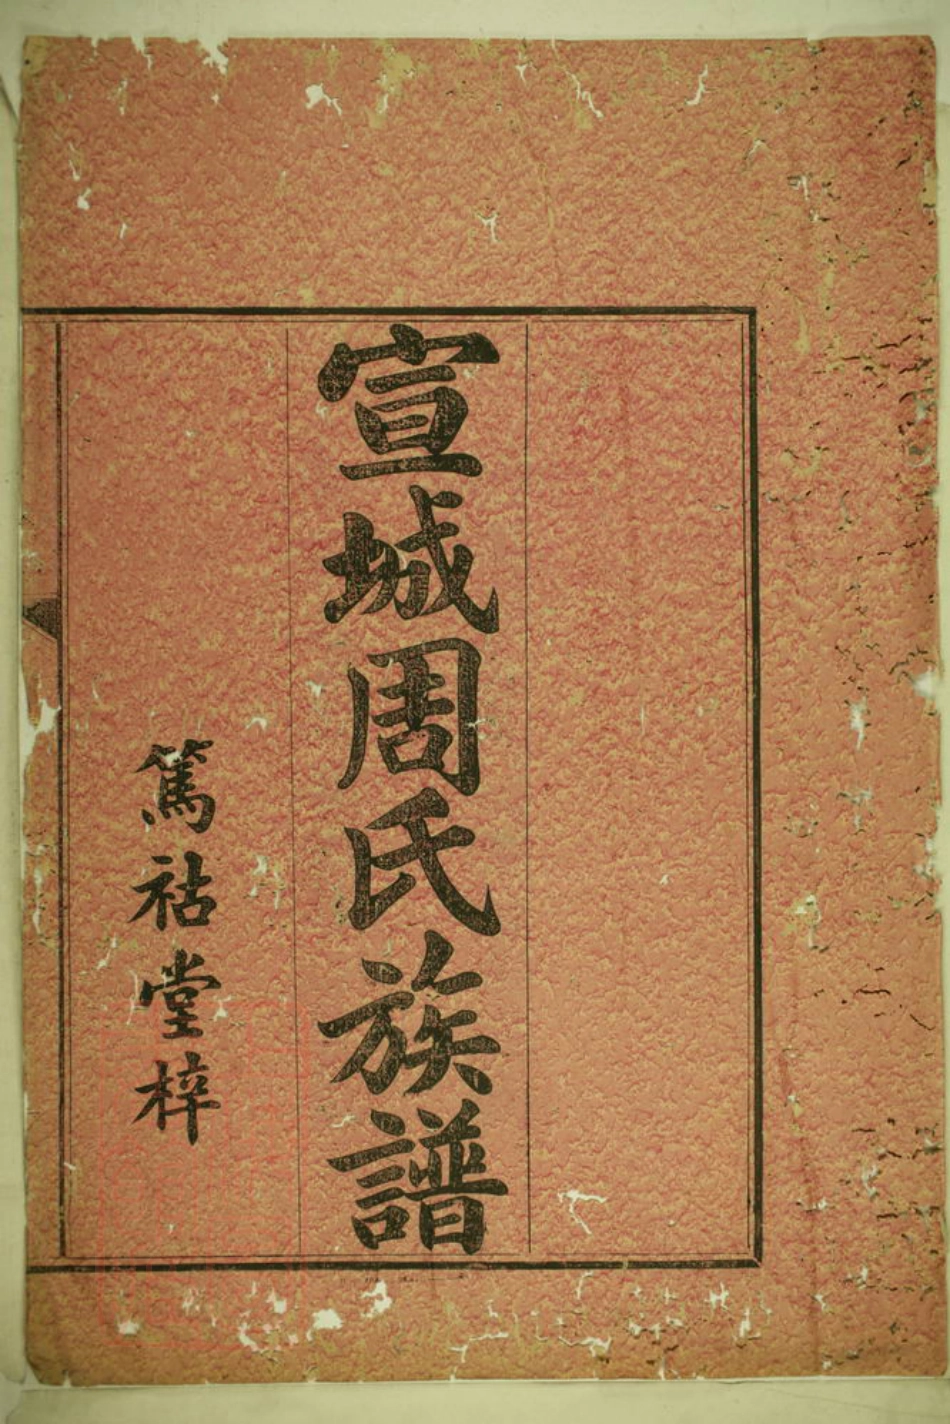 宣城周氏族譜
篤祜堂梓